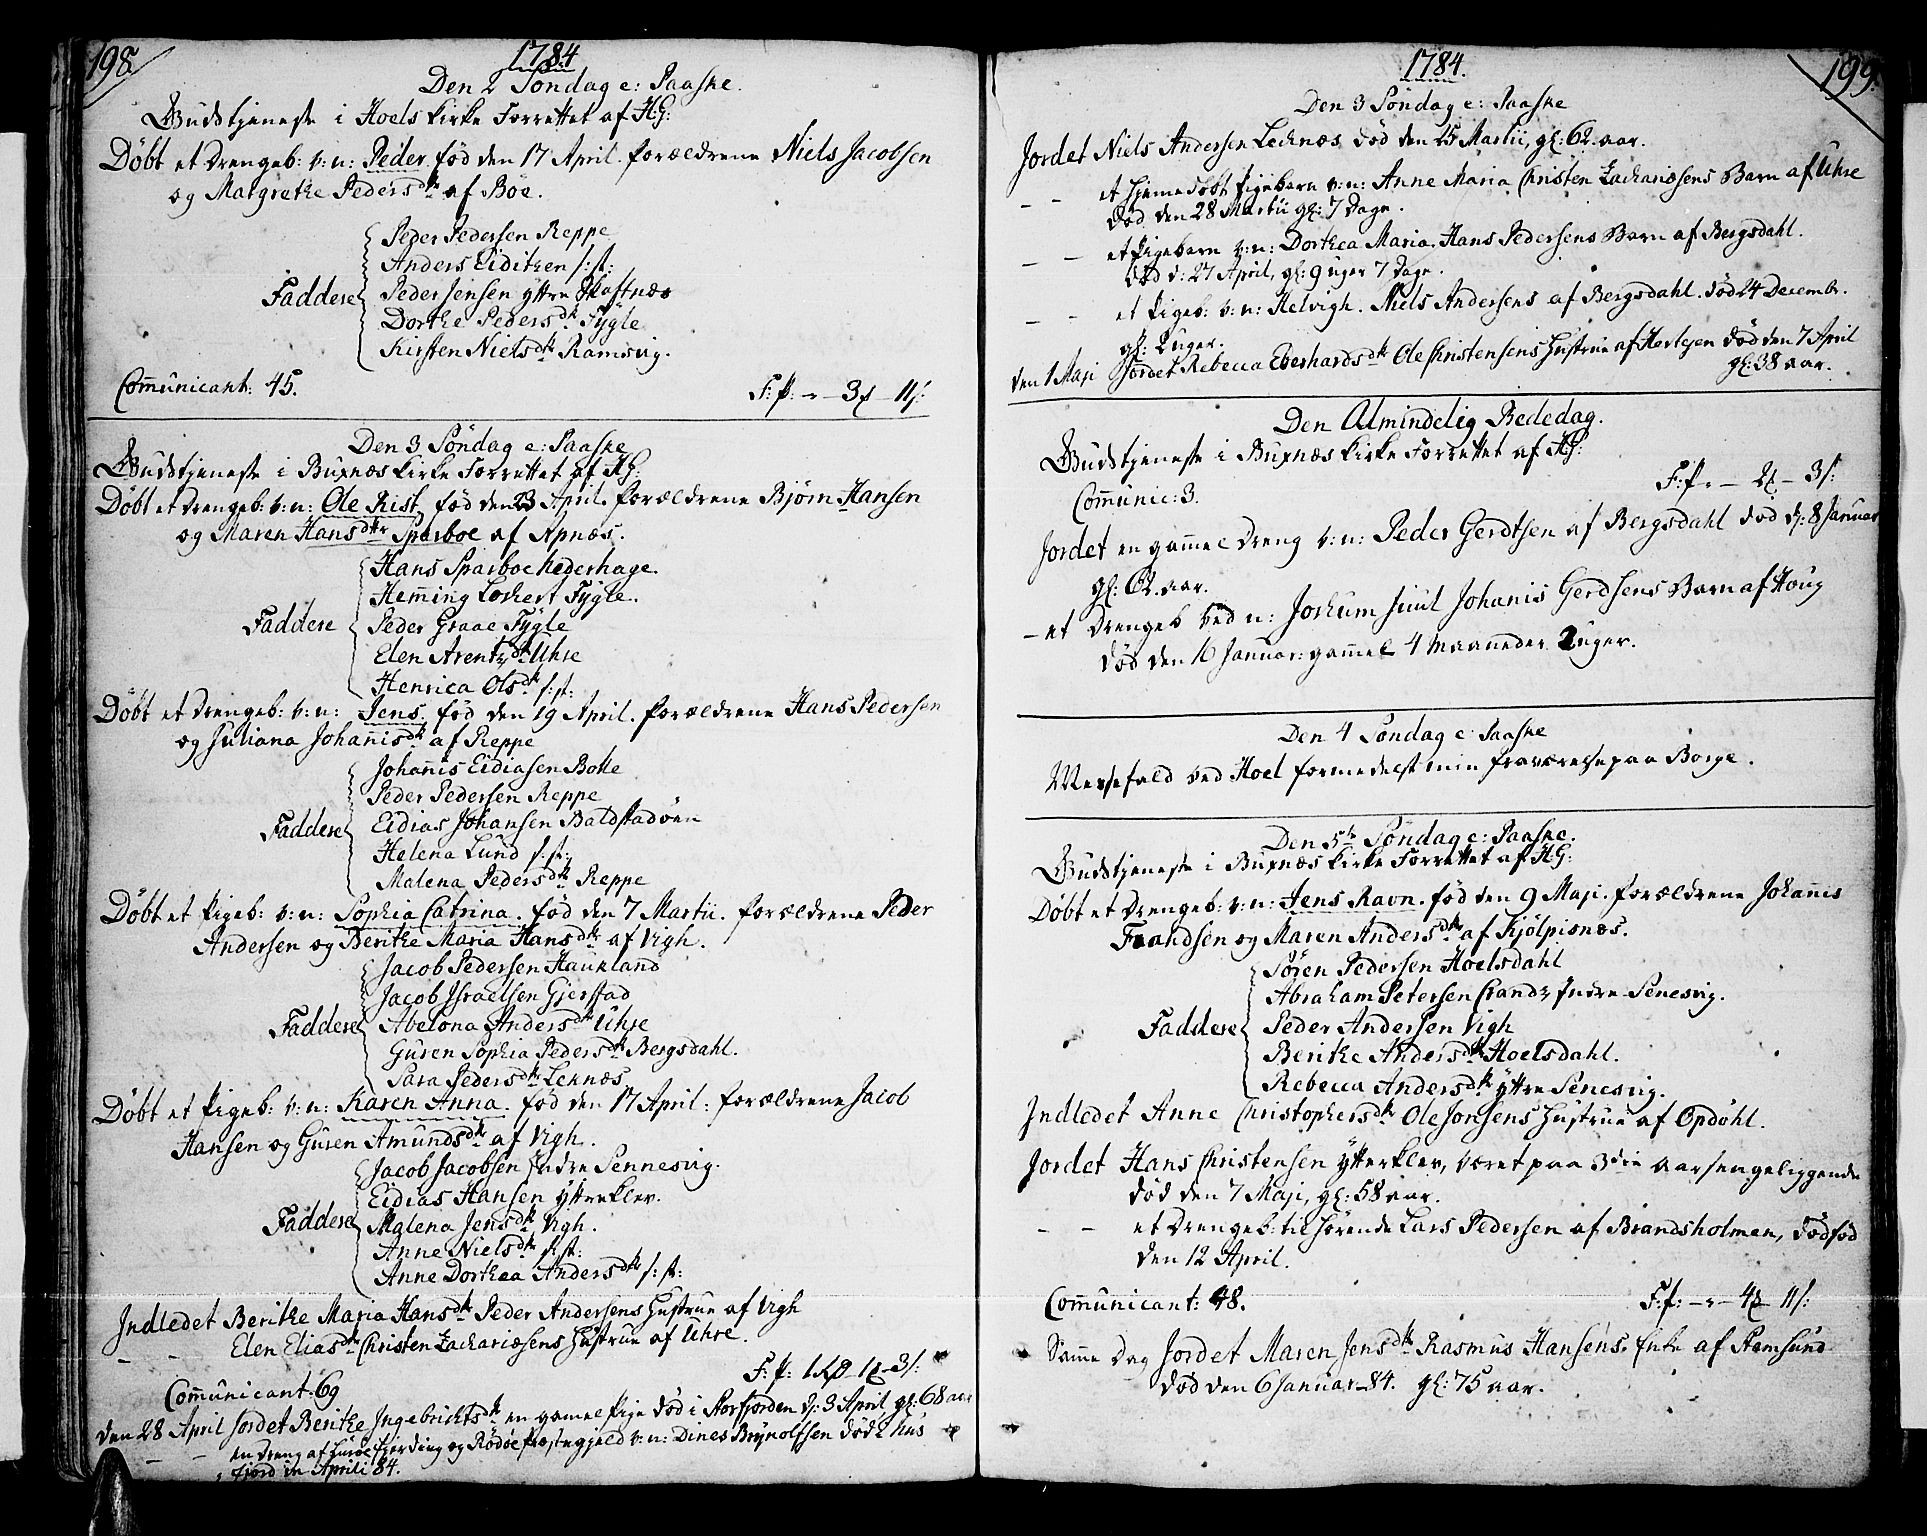 198.
1784
Den 2 Söndag e: Paaske.
Gudstjeneste i Hoels Kirke Forrettet af HG:
Döbt et Drengeb: v: n: Peder. föd den 17 April. forældrene Niels Jacobsen
og Margrethe Pedersdtr af Böe.
Peder Pedersen Reppe
Anders Eiditzen s: st:
Faddere Peder Jensen yttre Skaftnæs
Dorthe Pedersdtr Fygle
Kirsten Nielsdtr Ramsvig.
Communicant: 45.
F: P: - - 3 - 11 s:
Den 3 Söndag e: Paaske
Gudstjeneste i Buxnæs Kirke Forrettet af HG:
Döbt et Drengeb: v: n: Ole Rist, föd den 23 April. forældrene Bjørn Hansen
og Maren Hansdtr Sparboe af Apnæs.
Hans Sparboe Nederhage.
Hemming Lockert Fygle.
Faddere Peder Graae Fygle
Elen Arentzdtr Uhre
Henrica Olsdtr s: st:
Döbt et Drengeb: v: n: Jens. föd den 19 April. forældrene Hans Pedersen
og Juliana Johannisdtr af Reppe
Johannis Eidiasen Bolle
Peder Pedersen Reppe
Faddere Eidias Johansen Baldstadöen
Helena Lund s: st:
Malena Pedersdtr Reppe
Döbt et Pigeb: v: n: Sophia Catrina. föd den 7 Martii. forældrene Peder
Andersen og Berithe Maria Hansdtr af Vigh.
Jacob Pedersen Haukland
Jacob Israelsen Gjerstad
Faddere Abelona Andersdtr Uhre
Guren Sophia Pedersdtr Bergsdahl.
Sara Pedersdtr Leknæs
Döbt et Pigeb: v: n: Karen Anna. föd den 17 April: forældrene Jacob
Hansen og Guren Amundsdtr af Vigh.
Jacob Jacobsen Indre Sennesvig.
Eidias Hansen Ytterklev.
Faddere Malena Jensdtr Vigh.
Anne Nielsdtr s: st:
Anne Dorthea Andersdtr s: st:
Indledet Berithe Maria Hansdtr Peder Andersens Hustrue af Vigh
- - Elen Eliasdtr Christen Zachariæsens Hustrue af Uhre.
F: P: 1 - 1 - 3 s:
Communicant: 69
den 28 April Jordet Berithe Ingebrichtsdtr en gamel Pige död i Storfjorden d: 3 April gl: 68 aar
- - en Dreng af Luröe fjerding og Rödöe Præstegjæld v: n: Dines Brynolfsen död i hus
fjord in Aprili 84.
199.
1784.
Den 3 Söndag e: Paaske
Jordet Niels Andersen Lecknæs, död den 25 Martii, gl: 62. aar.
- - et hjemedöbt Pigebarn v: n: Anne Maria Christen Zachariæsens Barn af Uhre
död den 28 Martii gl: 7 Dage.
- - et Pigebarn v: n: Dorthea Maria, Hans Pedersens Barn af Bergsdahl.
död d: 27 April, gl: 9 uger 7 Dage.
- - et Pigeb: v: n: Helvigh. Niels Andersens af Bergsdahl. död 24 Decembr.
gl: 2 uger.
den 1 Maji Jordet Rebecca Eberhardsdtr Ole Christensens Hustrue af Hertzen död den 7 April
gl: 38 aar.
Den Almindelig Bededag.
Gudstjeneste i Buxnæs Kirke Forrettet af HG:
F: P: - 2 - 3 s:
Communic: 3.
Jordet en gammel Dreng v: n: Peder Gerdtsen af Bergsdahl död d: 8 Januar
gl: 62. aar.
- et Drengeb ved n: Jochum Juul Johanis Gerdsens Barn af Houg
död den 16 Januar: gammel 4 Maaneder 2 uger.
Den 4 Söndag e: Paaske
Messefald ved Hoel formedelst min fraværelse paa Borge.
Den 5te Söndag e: Paaske.
Gudstjeneste i Buxnæs Kirke Forrettet af HG:
Döbt et Drengeb: v: n: Jens Ravn. föd den 9 Maji. forældrene Johannis
Frandsen og Maren Andersdtr af Kjölpisnæs.
Sören Pedersen Hoelsdahl
Abraham Petersen Crandz Indre Senesvig.
Faddere Peder Andersen Vigh
Berithe Andersdtr Hoelsdahl.
Rebecca Andersdtr Yttre Senesvig.
Indledet Anne Christophersdtr Ole Jonsens Hustrue af Opdöhl.
Jordet Hans Christensen Ytterklev, været paa 3die Aar sengeliggende
död den 7 Maji, gl: 58 aar.
- - et Drengeb: tilhörende Lars Pedersen af Brandsholmen, dödföd
den 12 April.
Communicant: 48.
F: P: - - 4 - 11 s:
Samme Dag Jordet Maren Jensdtr Rasmus Hansens. Enke af Stemsund
död den 6 Januar 84. gl: 75 aar.